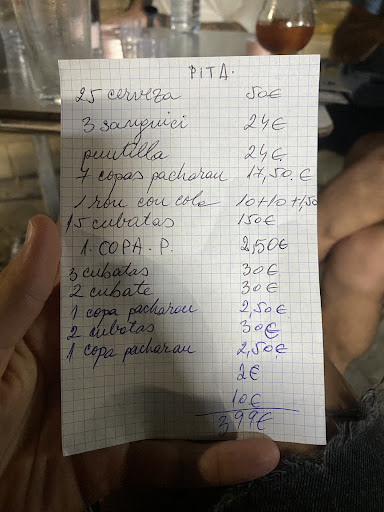 PITA.
25 cerveza 50€
3 sanguici 24€
puntilla 24€
7 copas pacharau 17,50.€
1 rou cou cola 10+10+1,50
15 cubatas 150€
1. COPA. P. 2,50€
3 cubatas 30€
2 cubate 30€
1 copa pacharau 2,50€
2 cubatas 30€
1 copa pacharau 2,50€
2€
10€
399€